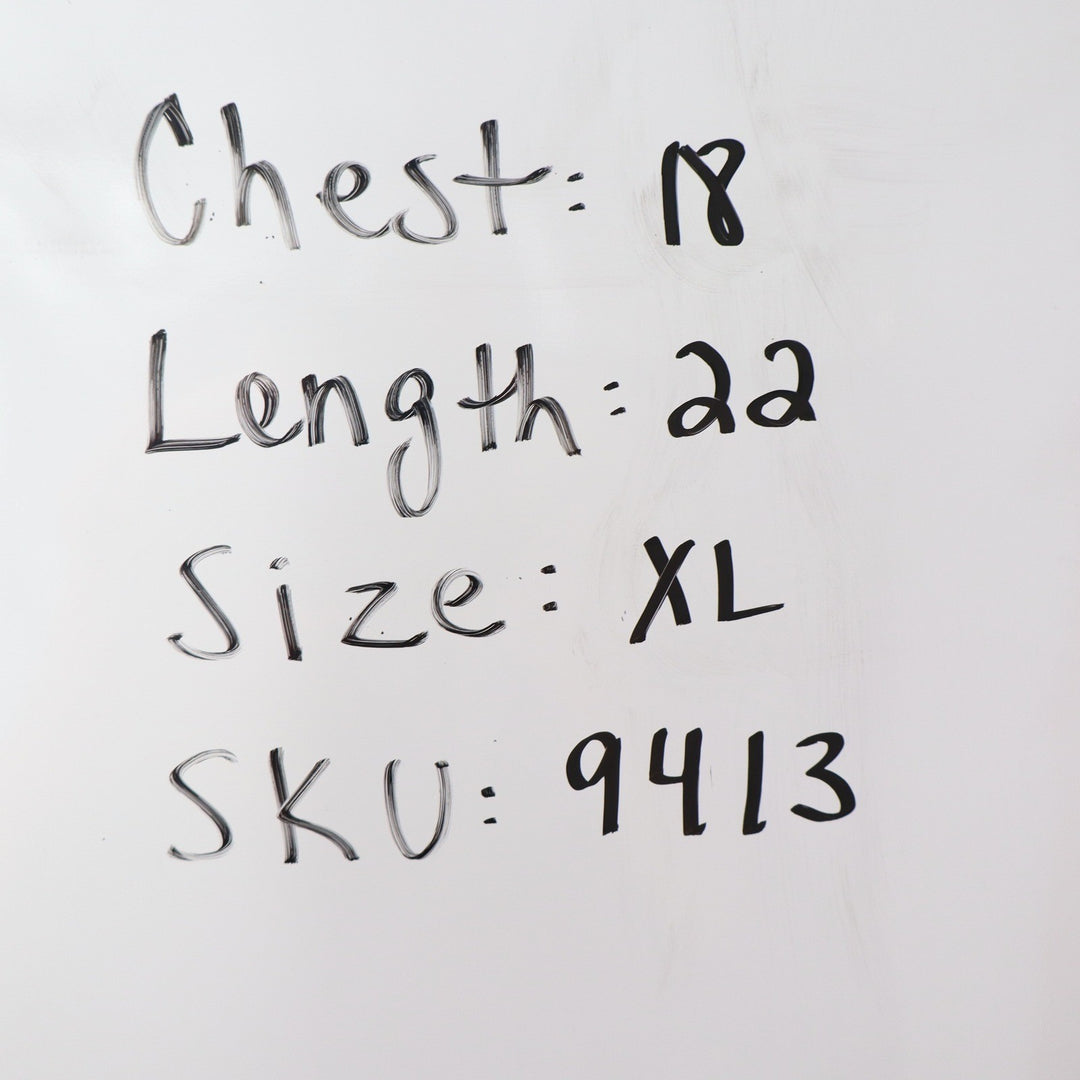 Chest: 18
Length: 22
Size: XL
SKU: 9413